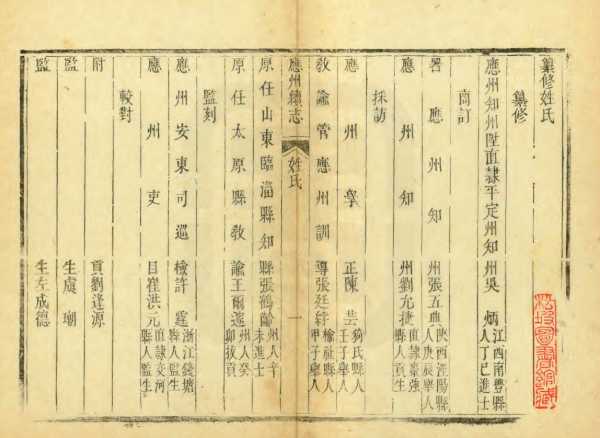 纂修姓氏
纂修
應州知州陞直隸平定州知州吳炳江西南豐縣人丁巳進士
商訂
署應州知州張五典陝西涇陽縣人庚辰舉人
應州知州劉允捷直隸棗強縣人貢生
採訪
應州學正陳芸猗氏縣人壬子舉人
教諭管應州訓導張廷 榆社縣人甲子舉人
應州續志 姓氏 一
原任山東臨淄縣知縣張鶴齡州人辛未進士
原任太原縣教諭王爾遂州人癸卯拔貢
監刻
應州安東司巡檢許霆浙江錢塘縣人監生
應州吏目崔洪元直隸交河縣人監生
較對
附貢劉逢源
監生虞瑚
監生左成德